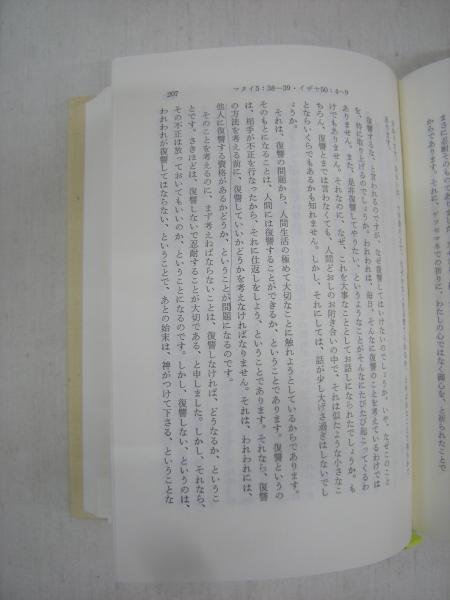 まさに忍耐そのもので
からであります。それに、ゲツセマネでの祈りに、わたしの心ではなく御心を、と祈られたことで
マタイ5：38—39・イザヤ50：4～9
207
復讐するな、と言われるのですが、なぜ復讐してはいけないのでしょうか。いや、なぜこのこと
を、特に取り上げるのでしょうか。われわれは、毎日、そんなに復讐のことを考えているわけでは
ありません。また、是非復讐してやりたい、というようなことがそんなにたびたび起こってくるわ
けでもありません。それなのに、なぜ、これを大事なこととしてお話しになられたでしょうか。も
ちろん、復讐とまでは言わなくても、人間どおしのお附き合いの中で、それに似たような小さなこ
とならいくらでもあるかも知れません。しかし、それにしては、話が少し大げさ過ぎはしないでし
ょうか。
それは、復讐の問題から、人間生活の極めて大切なことに触れようとしているからであります。
そのもとになることは、人間には復讐することができるか、ということであります。復讐というの
は、相手が不正を行なったから、それに仕返しをしよう、ということであります。それなら、復讐
の方法を考える前に、復讐していいかどうかを考えなければなりません。それは、われわれには、
他人に復讐する資格があるかどうか、ということが問題になるのです。
そのことを考えるのに、まず考えねばならないことは、復讐しなければ、どうなるか、というこ
とです。さきほどは、復讐しないで忍耐することが大切である、と申しました。しかし、それなら、
その不正は放っておいてもいいのか、ということになるのです。しかし、復讐しない、というのは、
われわれが復讐してはならない、ということで、あとの始末は、神がつけて下さる、ということな